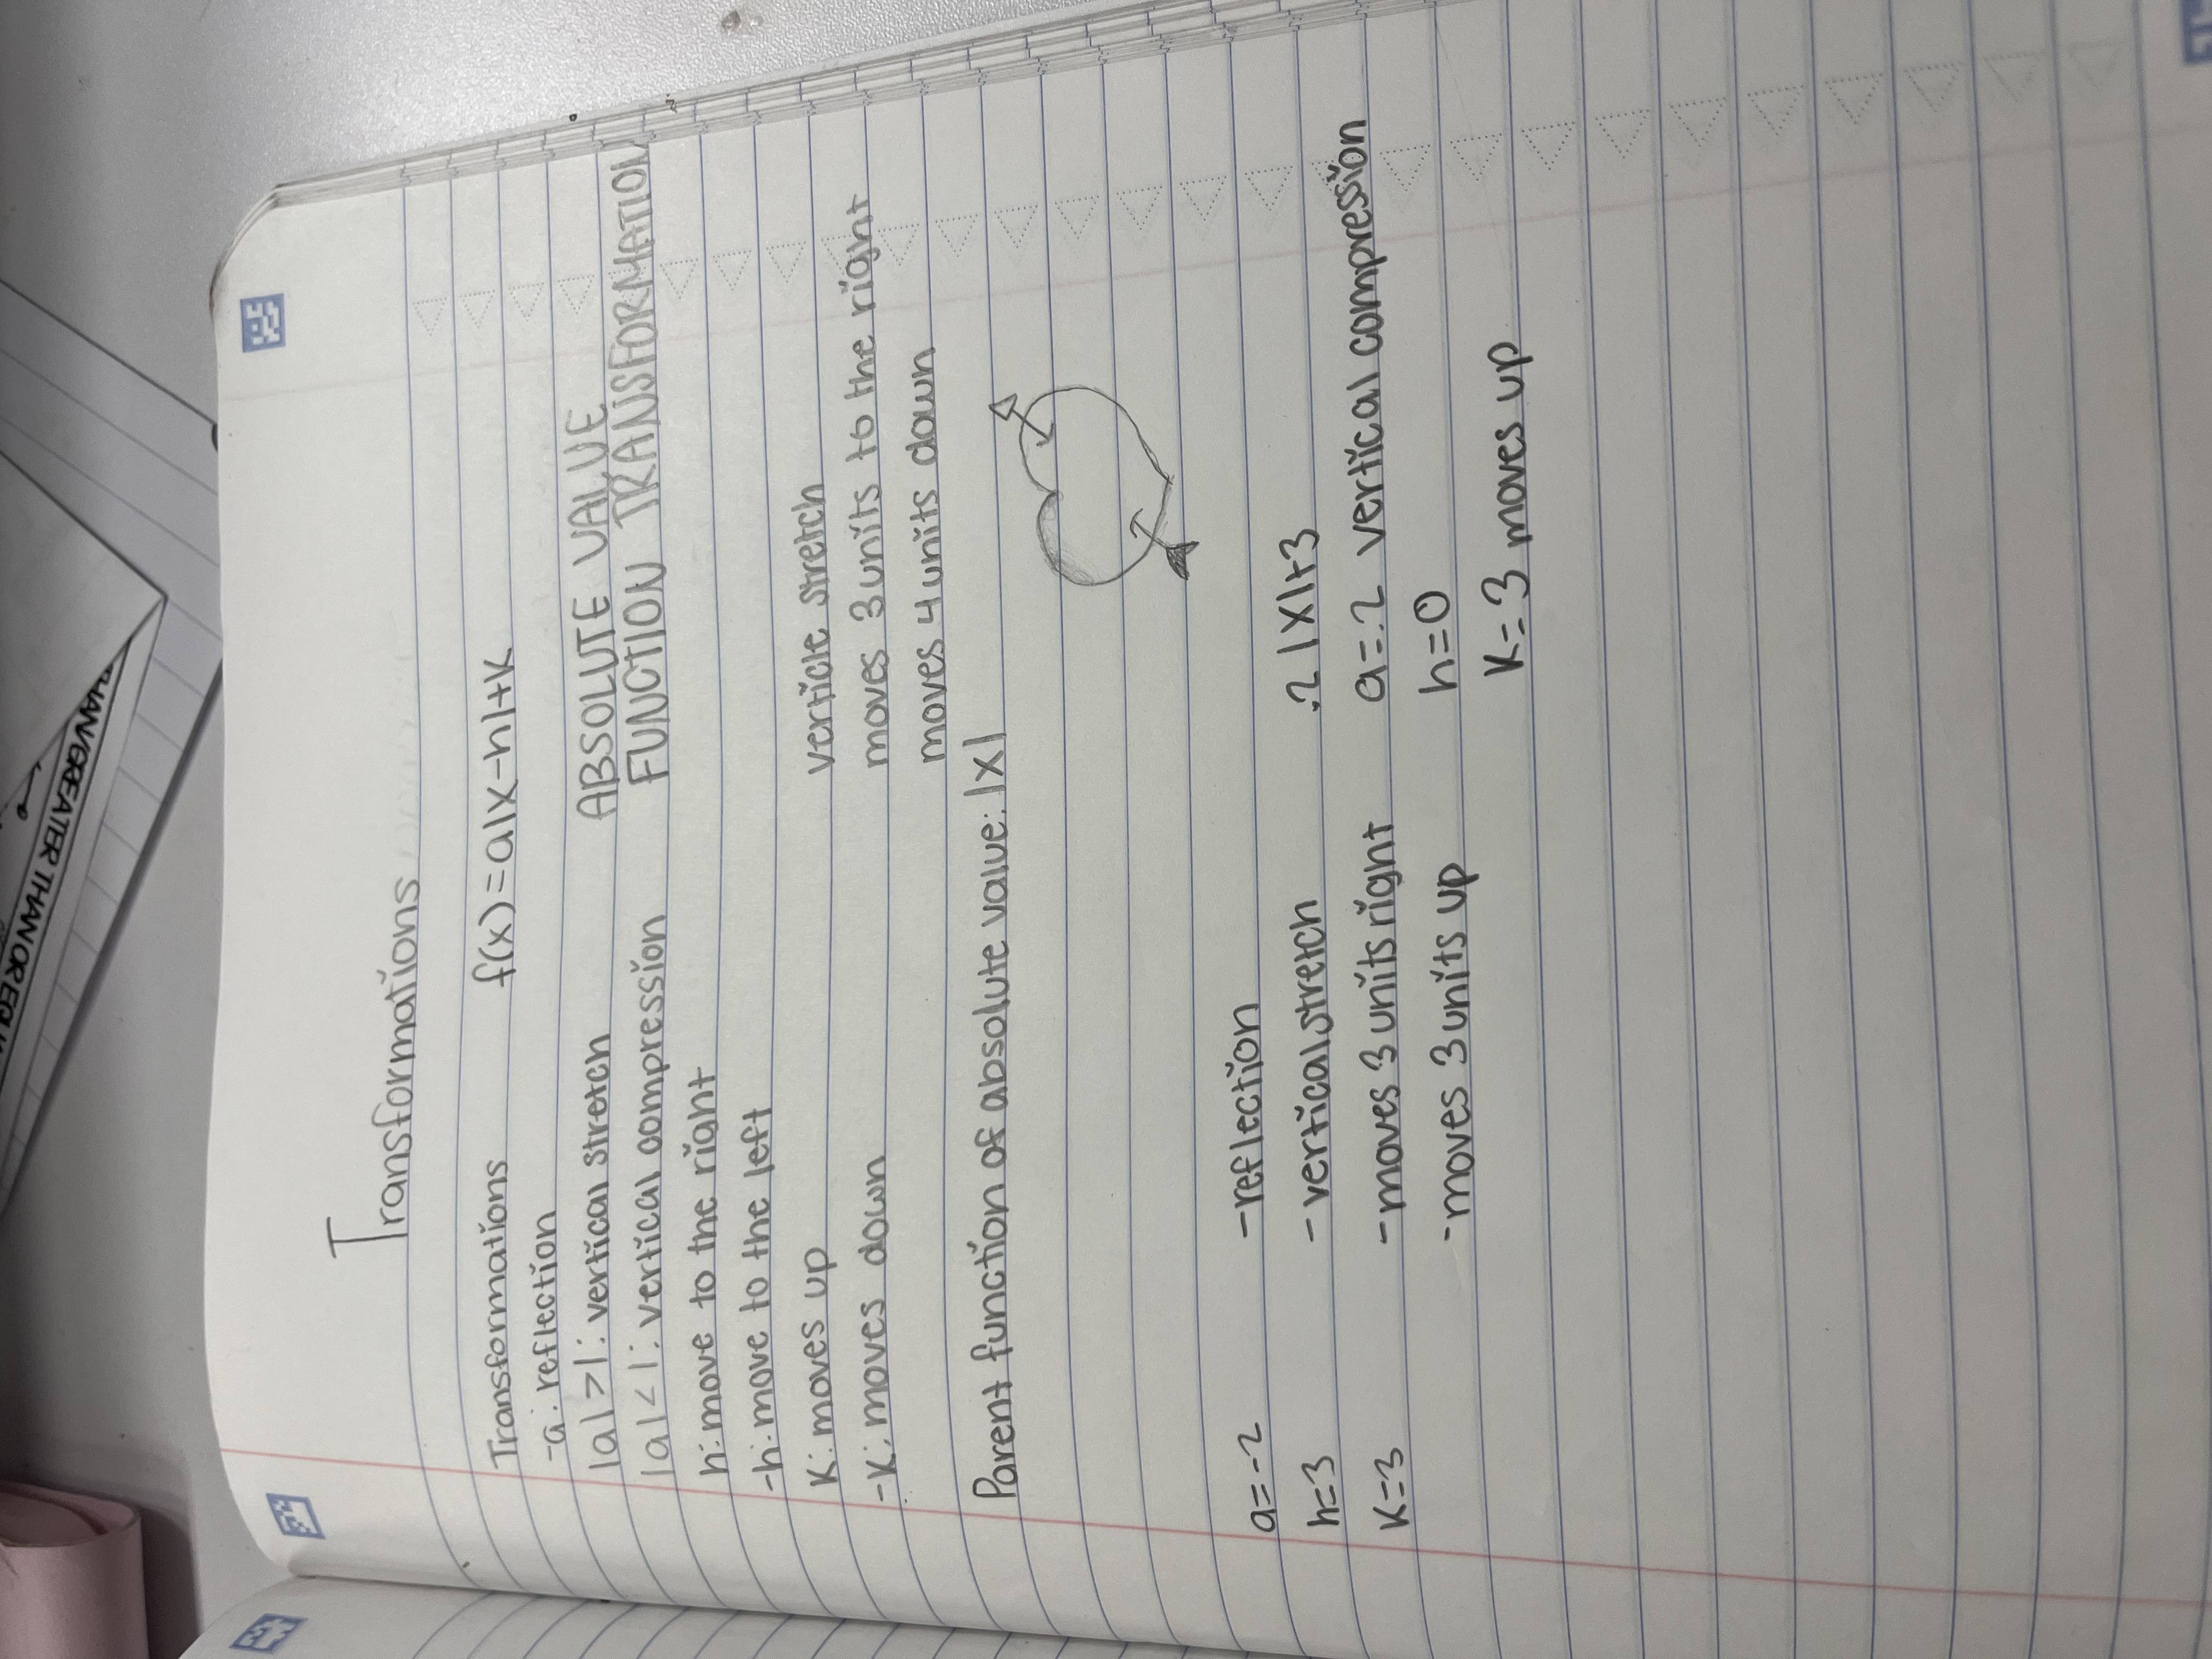 Transformations
Transformations f(x)=a|x-h|+K
-a: reflection
|a|>1: vertical stretch ABSOLUTE VALUE
|a|<1: vertical compression FUNCTION TRANSFORMATION
h: move to the right
-h: move to the left
K: moves up verticle stretch
-K: moves down moves 3 units to the right
moves 4 units down
Parent function of absolute value: |x|
a=-2 -reflection
h=3 -vertical stretch .2|x|+3
K=3 -moves 3 units right a=.2 vertical compression
-moves 3 units up h=0
K=3 moves up
THAN/GREATER THAN OR